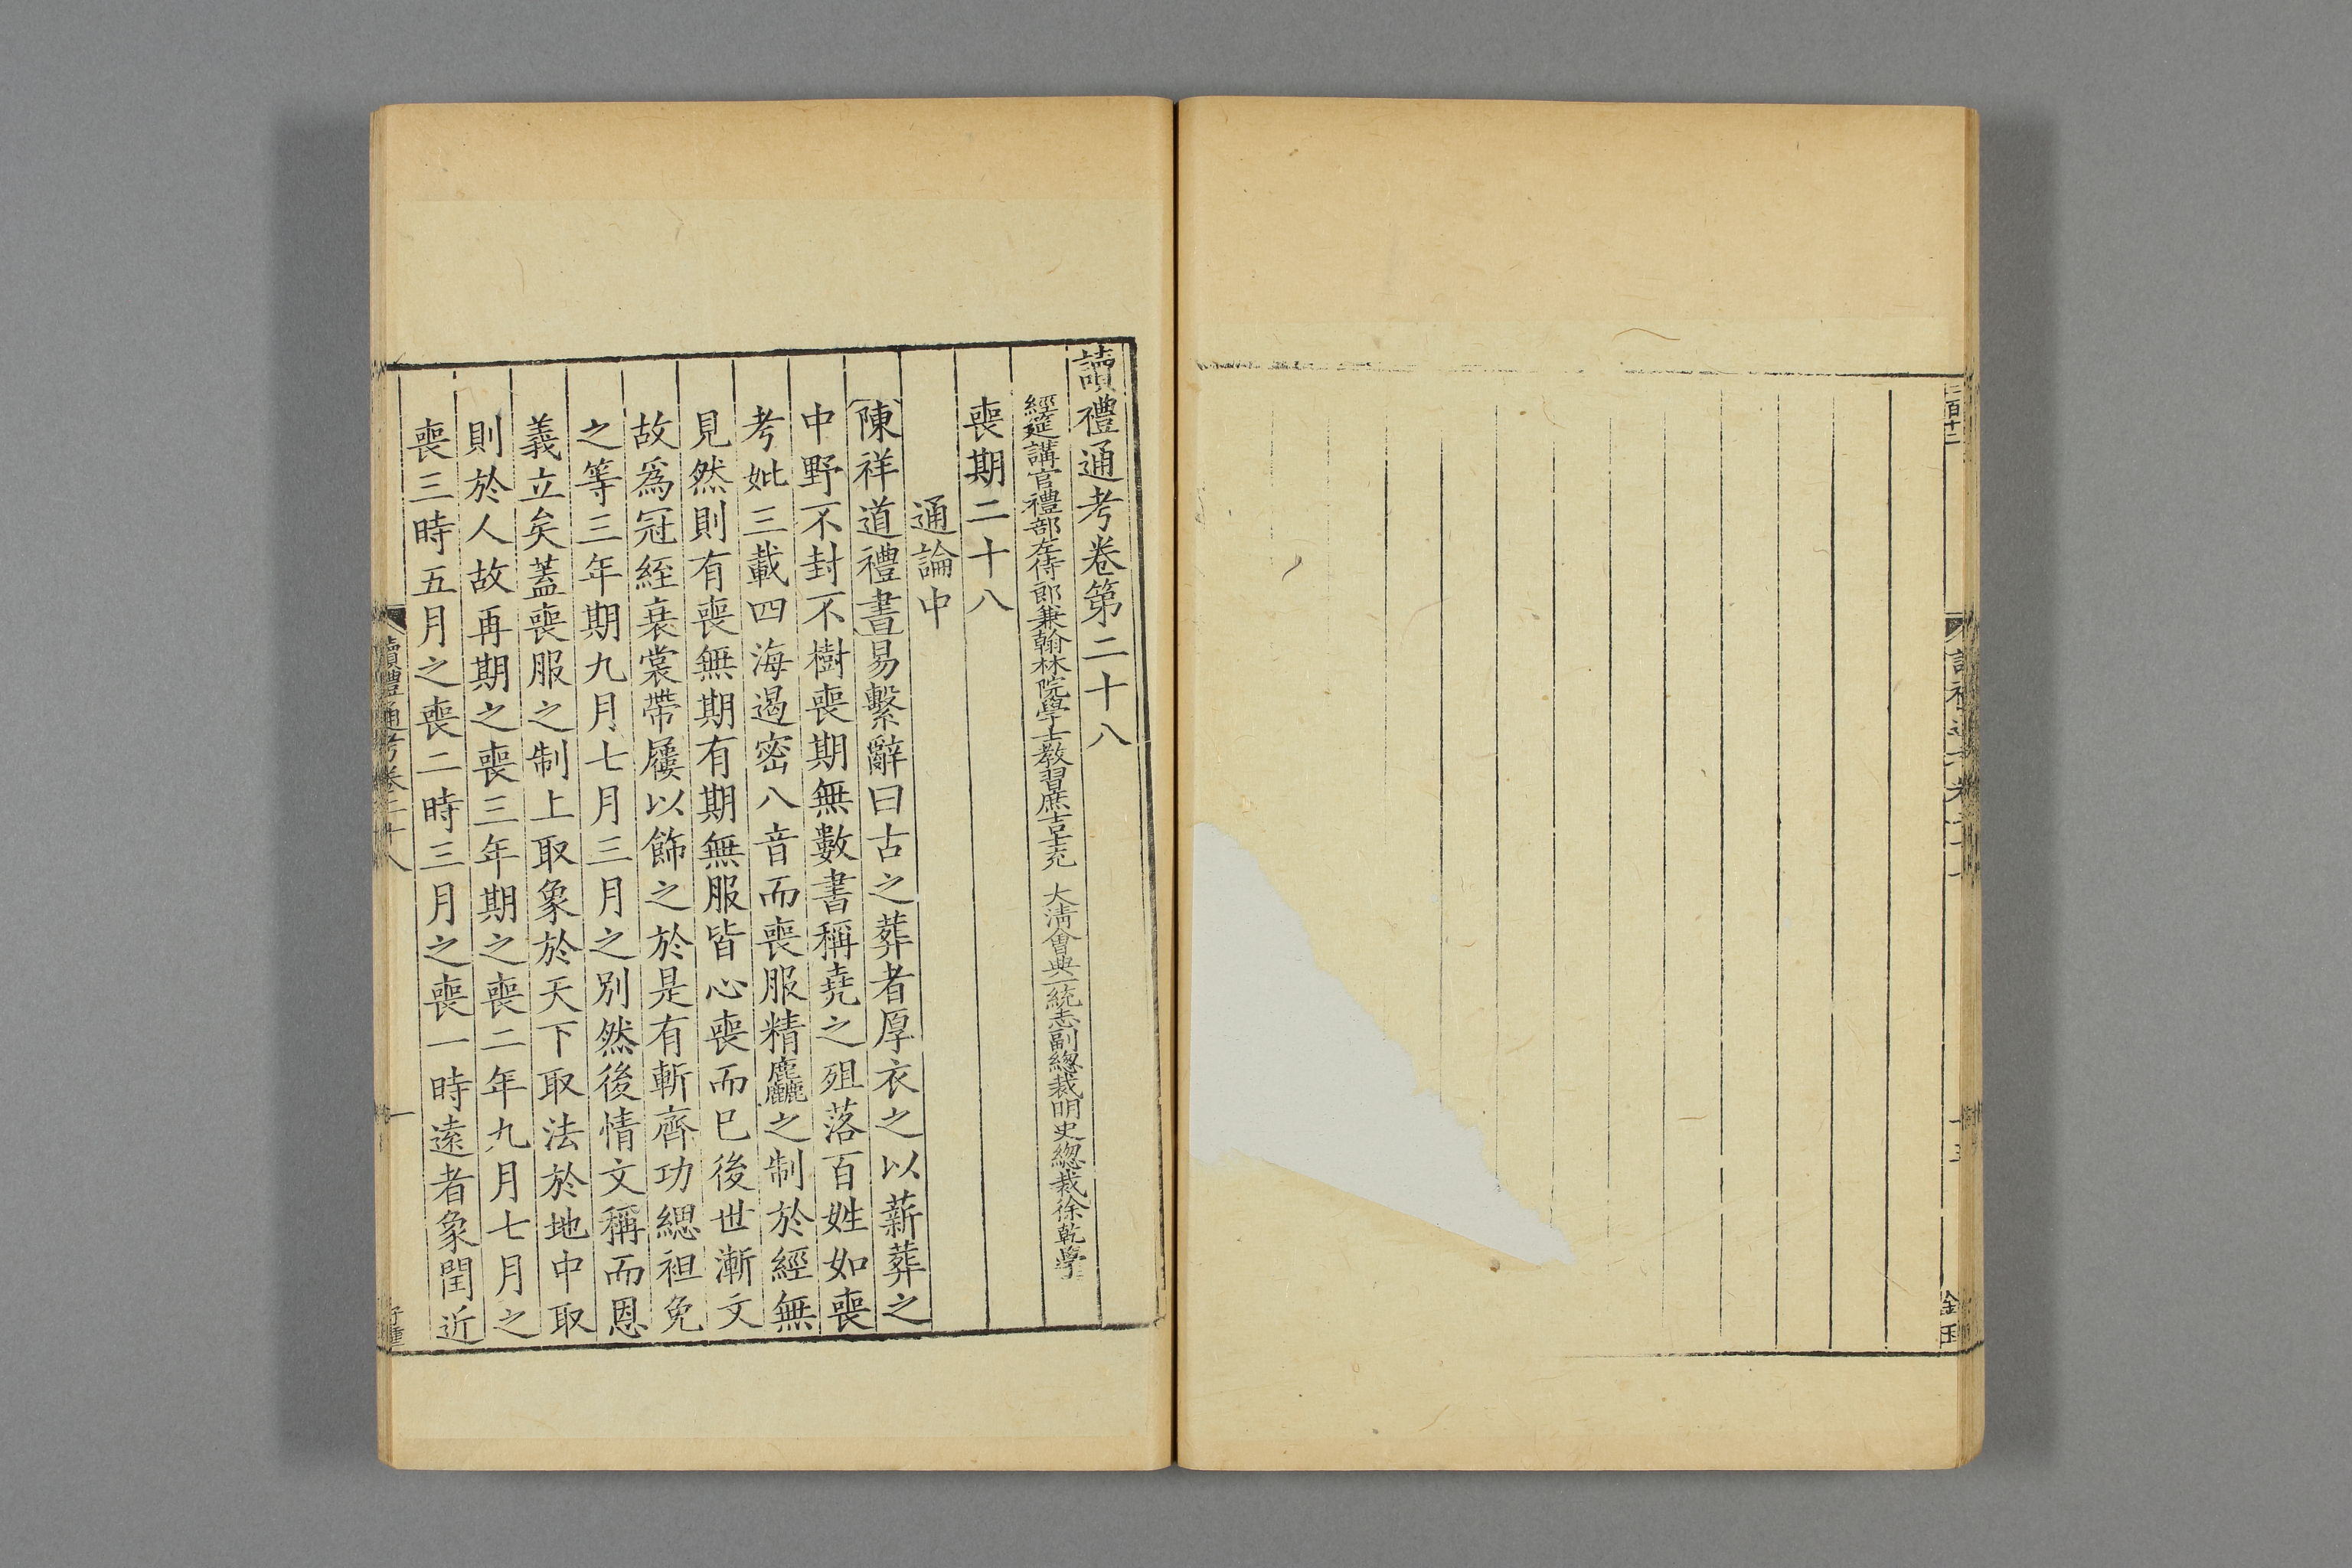 讀禮通考卷第二十八
經筵講官禮部左侍郎兼翰林院學士教習庶吉士充　大清會典一統志副總裁明史總裁徐乾學
喪期二十八
通論中
陳祥道禮書易繫辭曰古之葬者厚衣之以薪葬之
中野不封不樹喪期無數書稱堯之殂落百姓如喪
考妣三載四海遏密八音而喪服精麤之制於經無
見然則有喪無期有期無服皆心喪而巳後世漸文
故爲冠絰衰裳帶屨以飾之於是有斬齊功緦袒免
之等三年期九月七月三月之別然後情文稱而恩
義立矣蓋喪服之制上取象於天下取法於地中取
則於人故再期之喪三年期之喪二年九月七月之
喪三時五月之喪二時三月之喪一時遠者象閏近
讀禮通考卷二十八
一